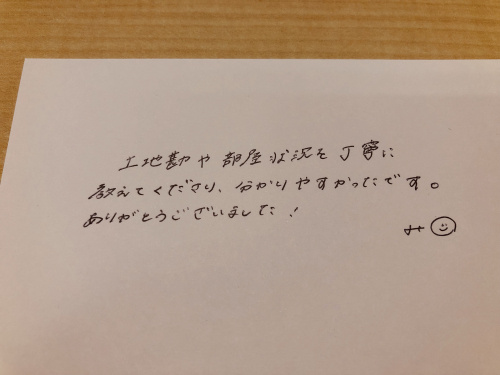 土地勘や部屋状況を丁寧に
教えてくださり、分かりやすかったです。
ありがとうございました！